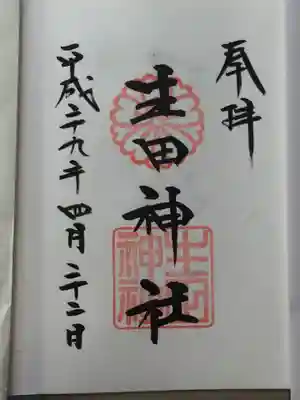 奉拝
生田神社
平成二十九年四月二十二日
生田神社